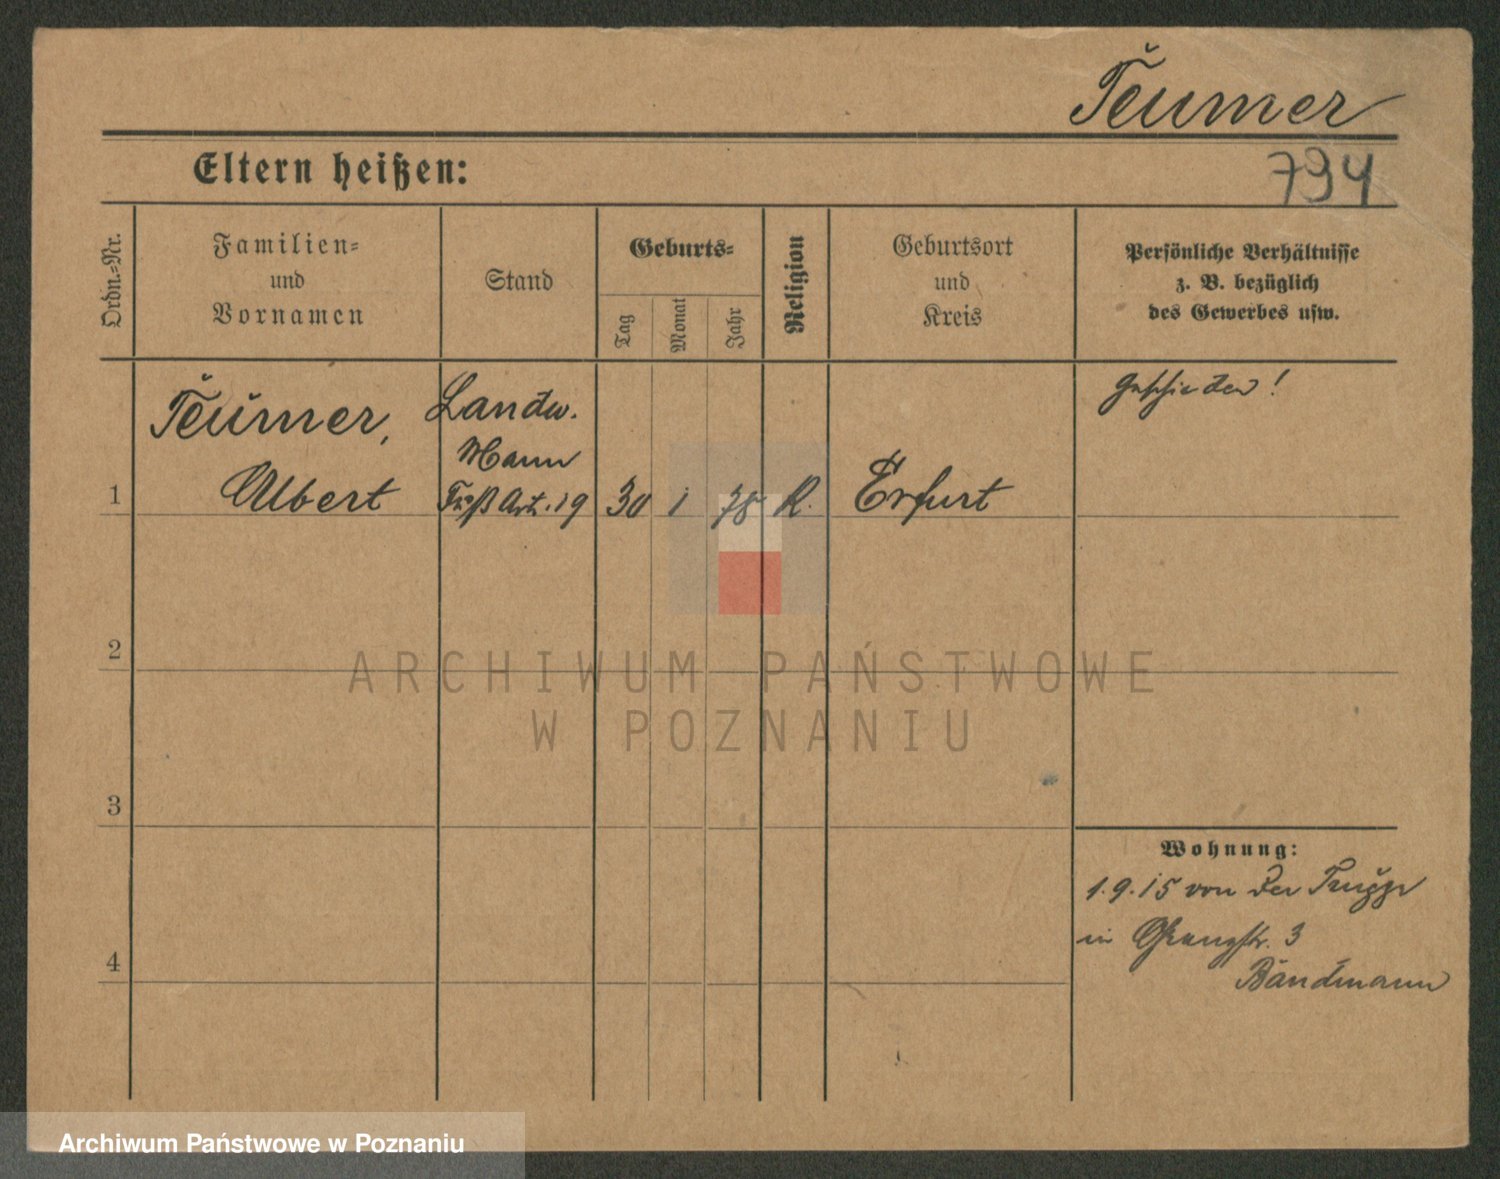 Teumer
Eltern heißen:
794
Ordn.-Nr.
Familien-
und
Vornamen
Stand
Geburts-
Tag
Monat
Jahr
Religion
Geburtsort
und
Kreis
Persönliche Verhältnisse
z. B. bezüglich
des Gewerbes usw.
1
Teumer,
Albert
Landw.
Mann
Fuß Art. 19
30 1 78
K.
Erfurt
geschieden!
2
ARCHIWUM PAŃSTWOWE
W POZNANIU
3
Wohnung:
1.9.15 von der Truppe
in 3
Bandmann
4
Archiwum Państwowe w Poznaniu